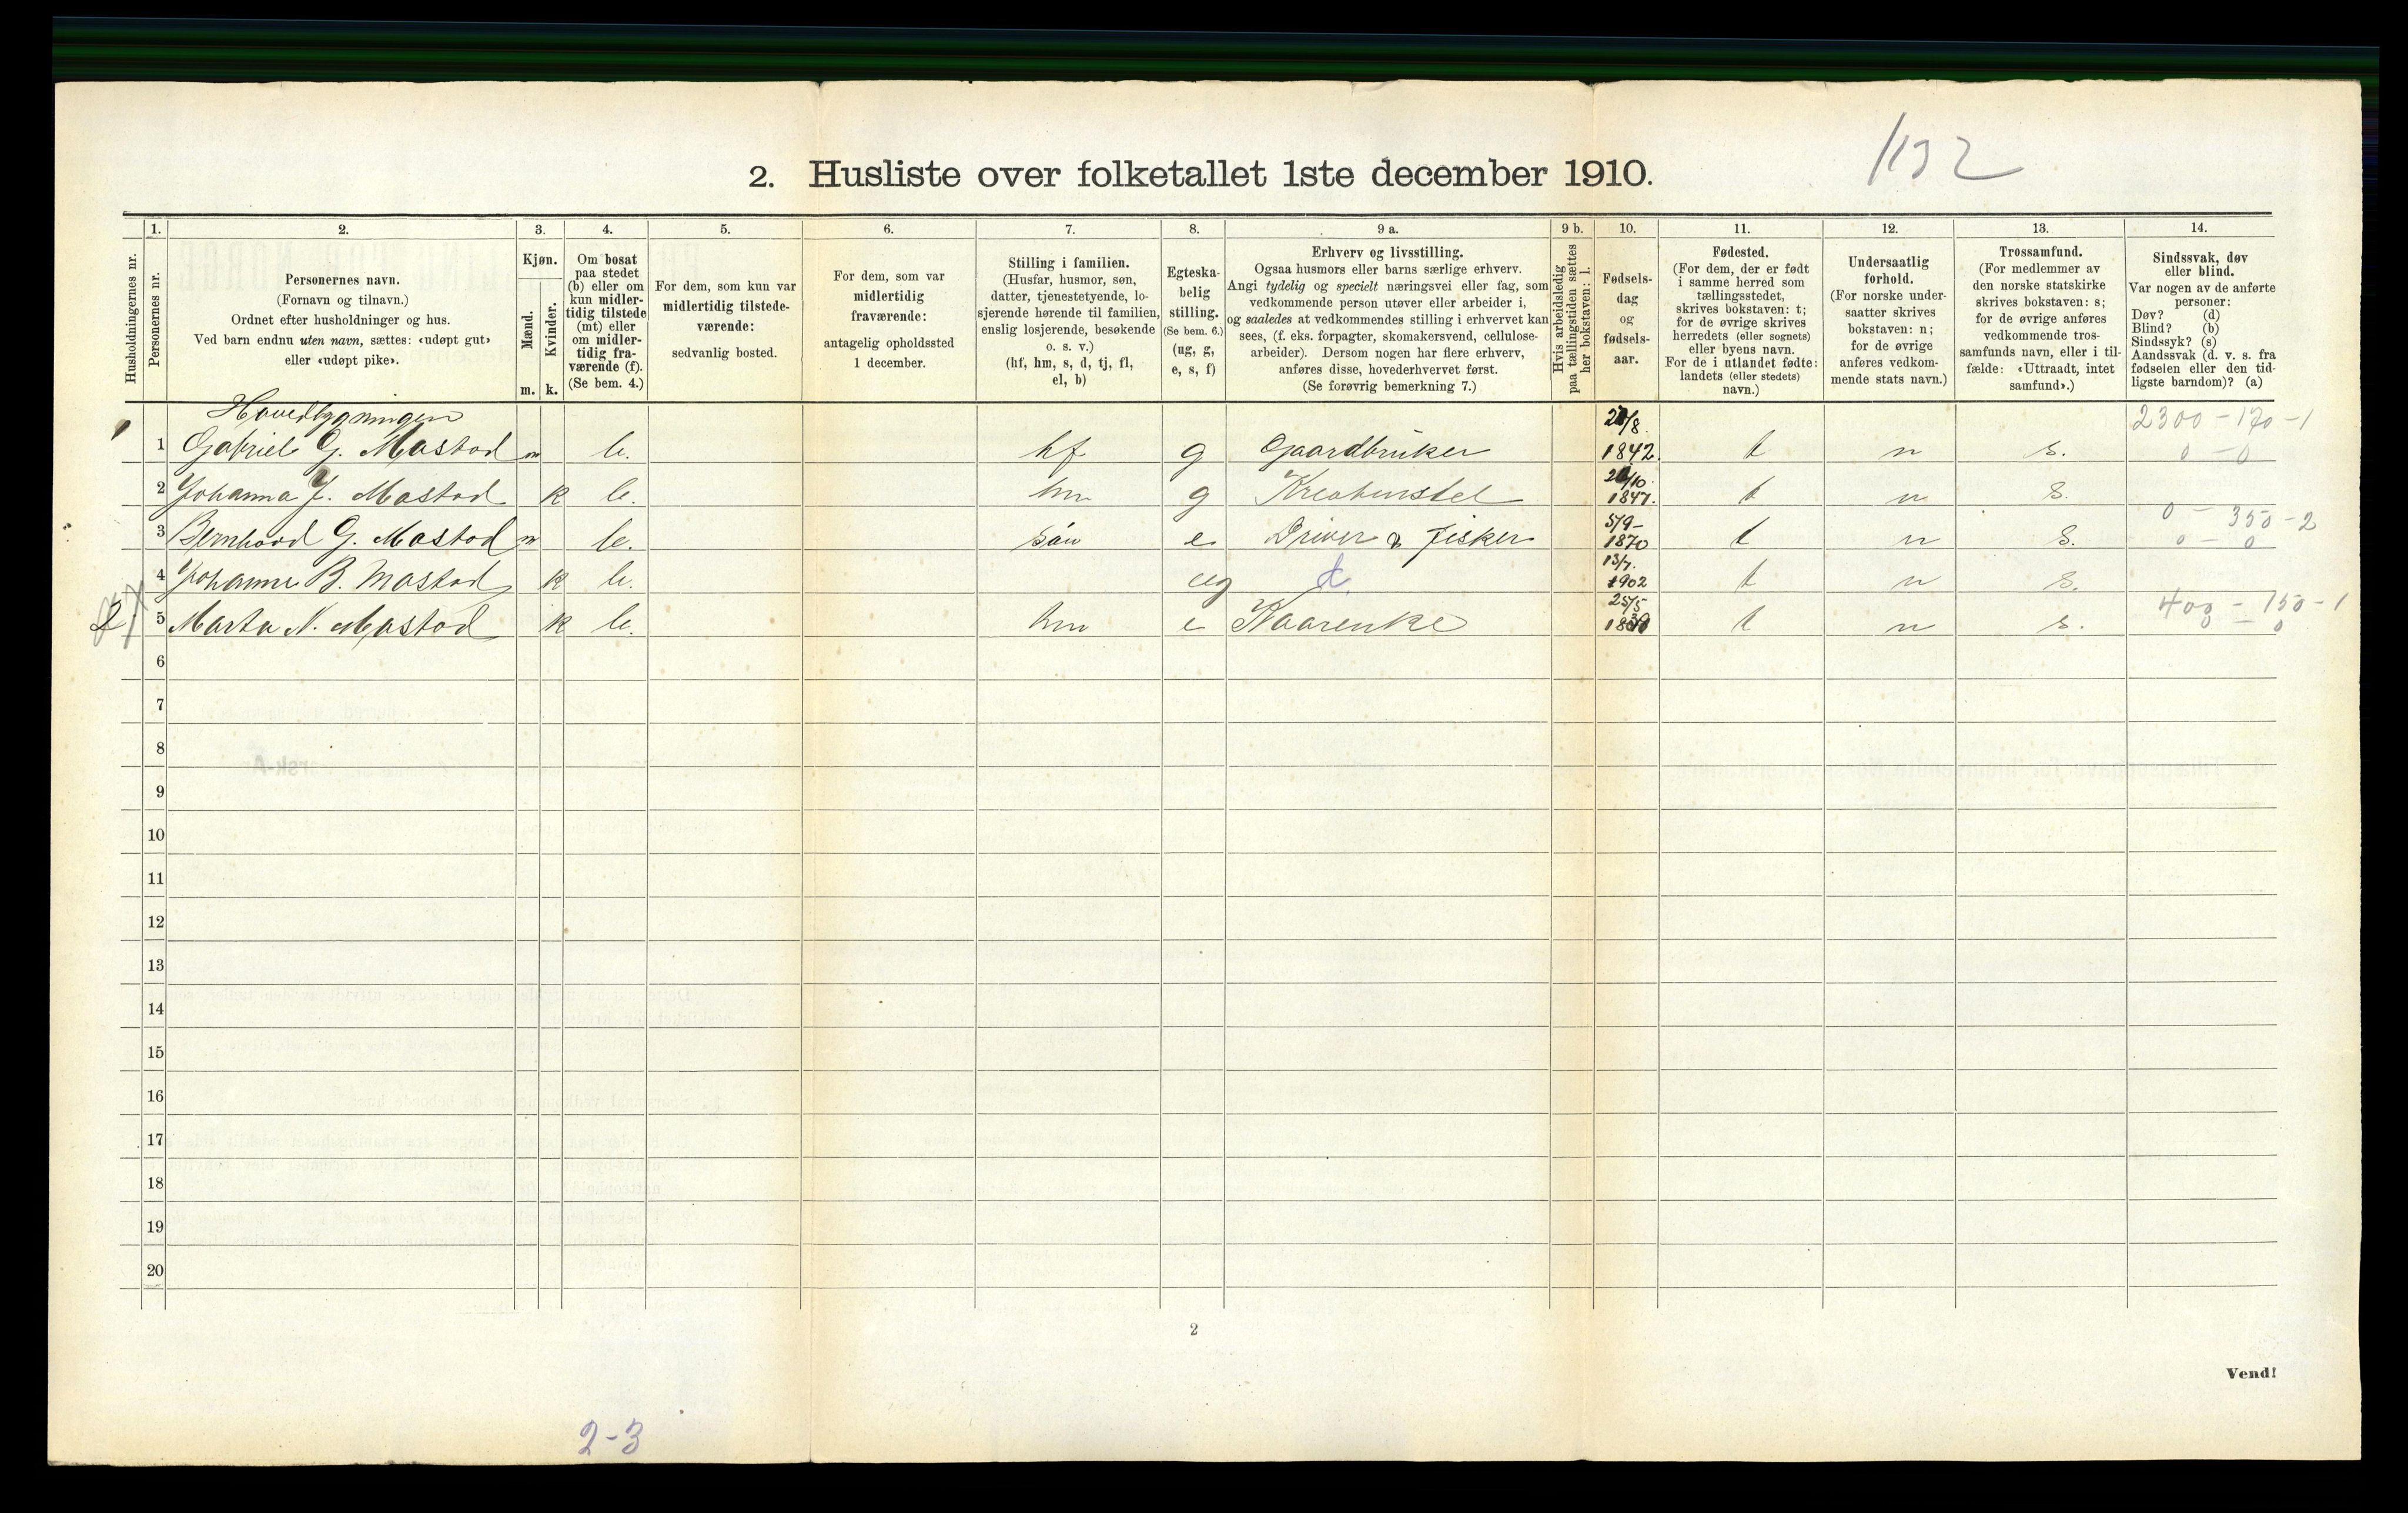 1132
2. Husliste over folketallet 1ste december 1910.
1. 2. 3. 4. 5. 6. 7. 8. 9 a. 9 b. 10. 11. 12. 13. 14.
Husholdningernes nr.
Personernes nr.
Personernes navn.
(Fornavn og tilnavn.)
Ordnet efter husholdninger og hus.
Ved barn endnu uten navn, sættes: «udøpt gut»
eller «udøpt pike».
Kjøn.
Mænd.
Kvinder.
m. k.
Om bosat
paa stedet
(b) eller om
kun midler-
tidig tilstede
(mt) eller
om midler-
tidig fra-
værende (f).
(Se bem. 4.)
For dem, som kun var
midlertidig tilstede-
værende:
sedvanlig bosted.
For dem, som var
midlertidig
fraværende:
antagelig opholdssted
1 december.
Stilling i familien.
(Husfar, husmor, søn,
datter, tjenestetyende, lo-
sjerende hørende til familien,
enslig losjerende, besøkende
o. s. v.)
(hf, hm, s, d, tj, fl,
el, b)
Egteska-
belig
stilling.
(Se bem. 6.)
(ug, g,
e, s, f)
Erhverv og livsstilling.
Ogsaa husmors eller barns særlige erhverv.
Angi tydelig og specielt næringsvei eller fag, som
vedkommende person utøver eller arbeider i,
og saaledes at vedkommendes stilling i erhvervet kan
sees, (f. eks. forpagter, skomakersvend, cellulose-
arbeider). Dersom nogen har flere erhverv,
anføres disse, hovederhvervet først.
(Se forøvrig bemerkning 7.)
Hvis arbeidsledig
paa tællingstiden sættes
her bokstaven: l.
Fødsels-
dag
og
fødsels-
aar.
Fødested.
(For dem, der er født
i samme herred som
tællingsstedet,
skrives bokstaven: t;
for de øvrige skrives
herredets (eller sognets)
eller byens navn.
For de i utlandet fødte:
landets (eller stedets)
navn.)
Undersaatlig
forhold.
(For norske under-
saatter skrives
bokstaven: n;
for de øvrige
anføres vedkom-
mende stats navn.)
Trossamfund.
(For medlemmer av
den norske statskirke
skrives bokstaven: s;
for de øvrige anføres
vedkommende tros-
samfunds navn, eller i til-
fælde: «Uttraadt, intet
samfund».)
Sindssvak, døv
eller blind.
Var nogen av de anførte
personer:
Døv? (d)
Blind? (b)
Sindssyk? (s)
Aandssvak (d. v. s. fra
fødselen eller den tid-
ligste barndom)? (a)
Hovedbygningen /8. 2300 - 170 - 1
1 Gabriel G. Mastad m b. hf g Gaardbruker 1842. t n s. 0 - 0
/10.
2 Johanna J. Mastad k b. hm g Kreaturstel 1847. t n s.
5/9- 0 - 350 - 2
3 Bernhard G. Mastad m b. søn e Driver & Fisker 1870 t n s. 0 - 0
13/7.
4 Johanne B. Mastad k b. ug d. 1902 t n s.
25/5 400 - 150 - 1
2 5 Marta N. Mastad k b. hm e Kaarenke t n s. 0 - 0
6
7
8
9
10
11
12
13
14
15
16
17
18
19
20
2
Vend!
2-3